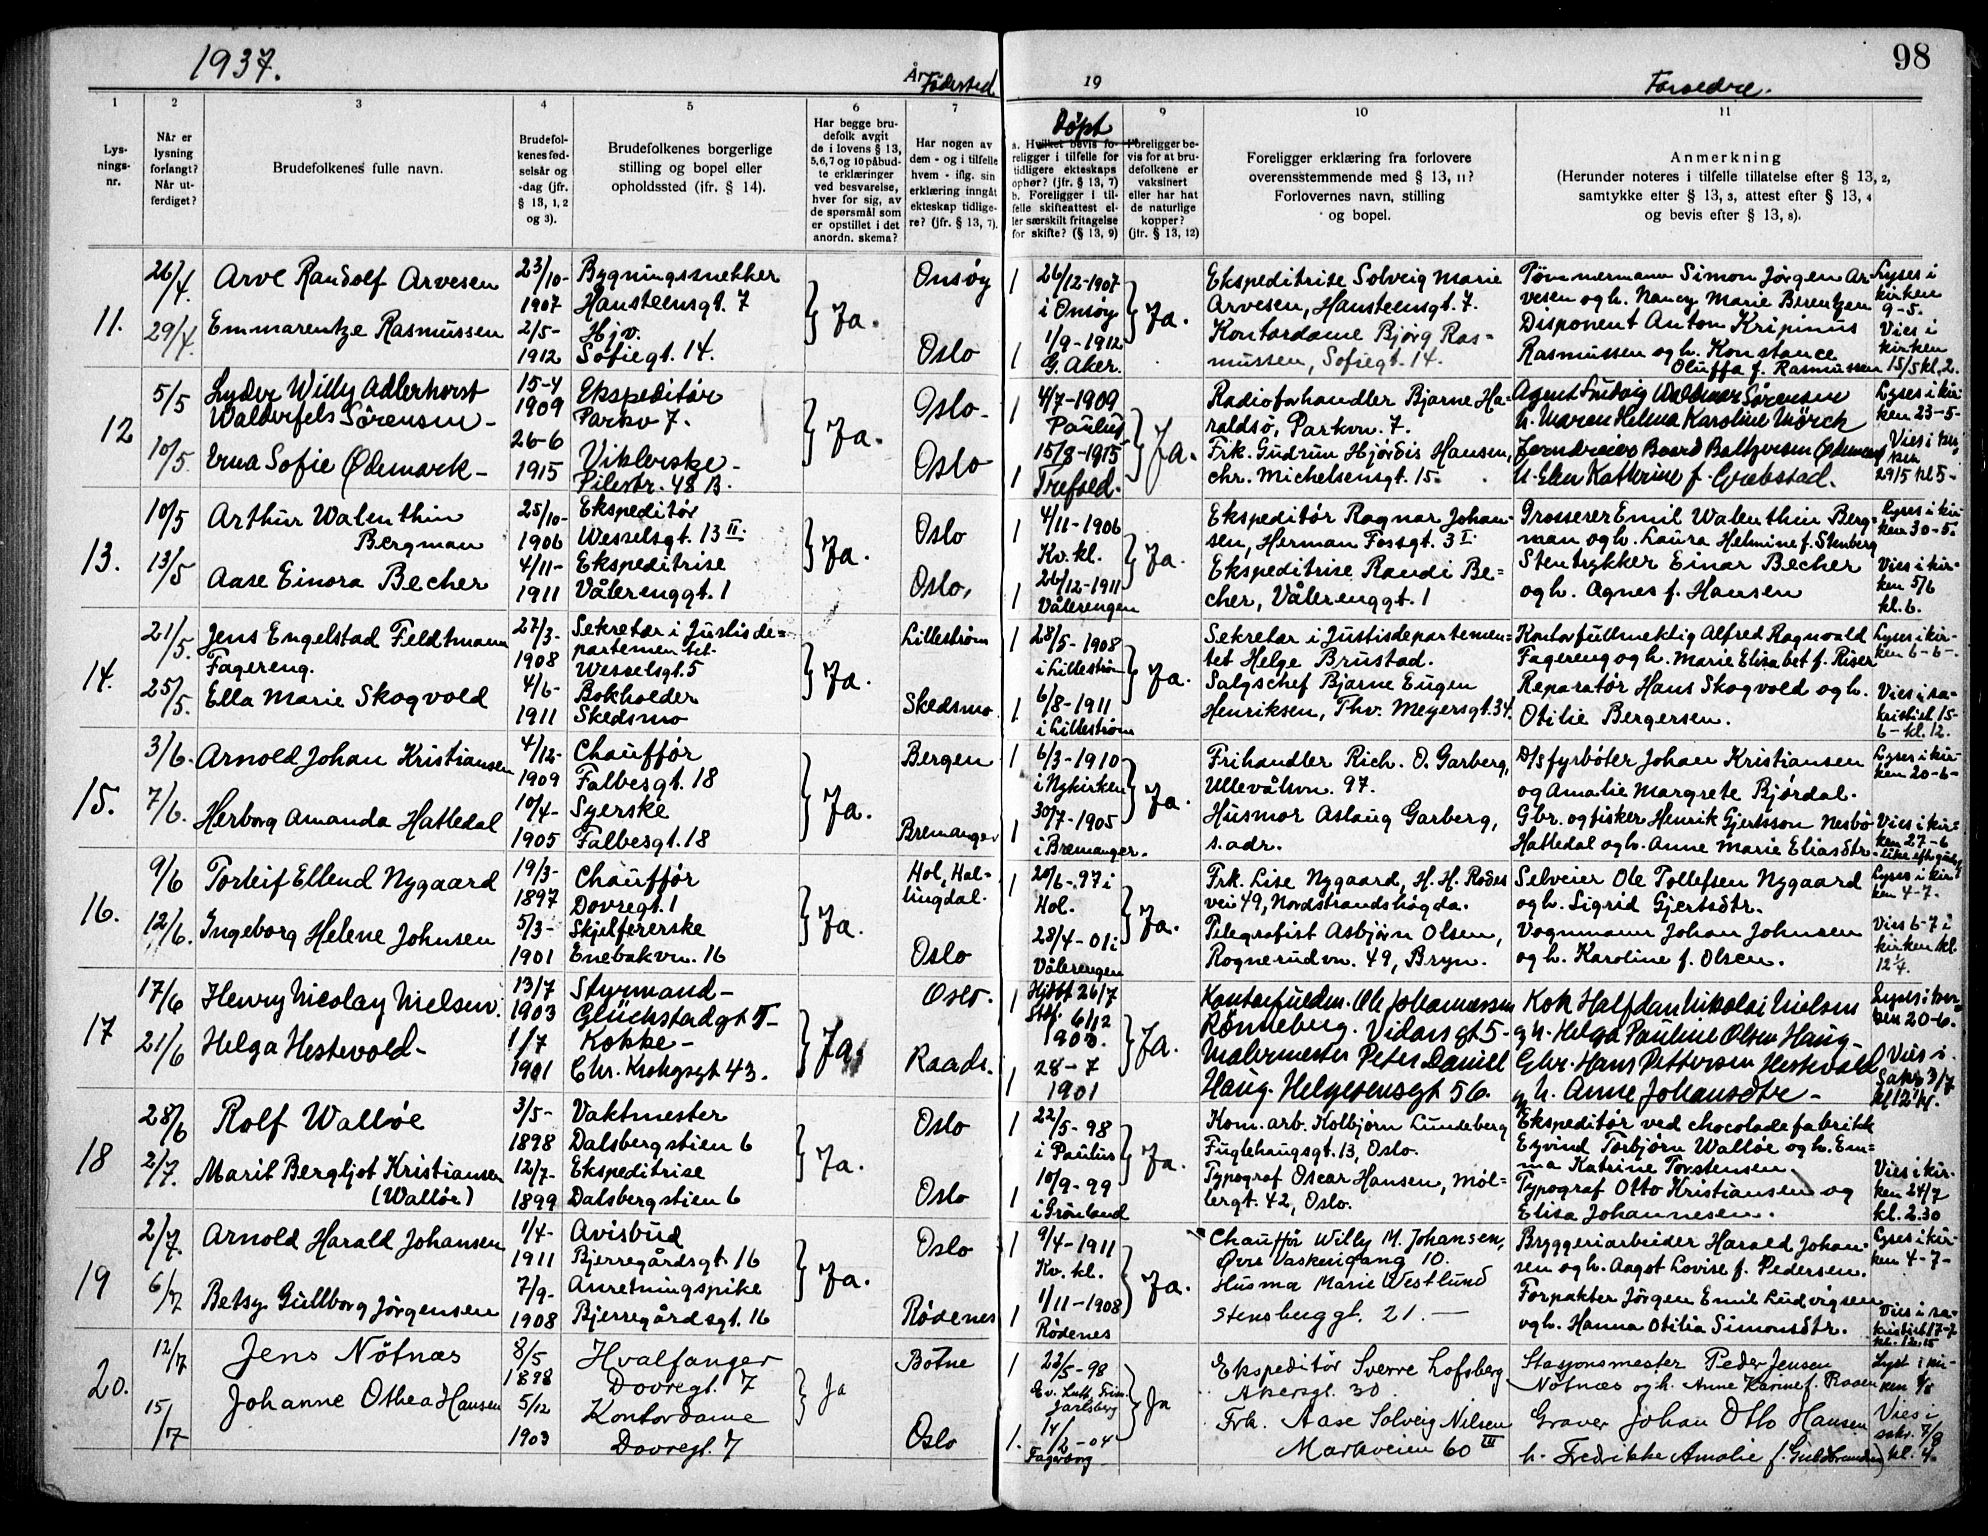 1937.
År
Fødested
19
Foreldre.
98
1
2
3
4
5
6
7
Døpt
9
10
11
Lys-
nings-
nr.
Når er
lysning
forlangt?
Når ut-
ferdiget?
Brudefolkenes fulle navn.
Brudefol-
kenes fød-
selsår og
-dag (jfr.
§ 13, 1, 2
og 3).
Brudefolkenes borgerlige
stilling og bopel eller
opholdssted (jfr. § 14).
Har begge bru-
defolk avgit
de i lovens § 13,
5,6,7 og 10 påbud-
te erklæringer
ved besvarelse,
hver for sig, av
de spørsmål som
er opstillet i det
anordn. skema?
Har nogen av
dem - og i tilfelle
hvem - iflg. sin
erklæring inngått
ekteskap tidlige-
re? (jfr. § 13, 7).
a. Hvilket bevis fo-
religger i tilfelle for
tidligere ekteskaps
ophør? (jfr. § 13, 7)
b. Foreligger i til-
felle skifteattest el-
ler særskilt fritagelse
for skifte? (§ 13, 9)
Foreligger be-
vis for at bru-
defolkene er
vaksinert
eller har hat
de naturlige
kopper?
(jfr. § 13, 12)
Foreligger erklæring fra forlovere
overensstemmende med § 13, 11?
Forlovernes navn, stilling
og bopel.
Anmerkning
(Herunder noteres i tilfelle tillatelse efter § 13, 2,
samtykke efter § 13, 3, attest efter § 13, 4
og bevis efter § 13, 8).
11.
26/4.
29/4.
Arve Randolf Arvesen
Emmarentze Rasmussen
23/10-
1907
2/5-
1912
Bygningssnekker
Hansteensgt. 7
Hjv.
Sofiegt. 14.
Ja.
Onsøy
Oslo
1 26/12-1907
i Onsøy
1/9-1912
1 G. Aker.
Ja.
Ekspeditrise Solveig Marie
Arvesen, Hansteensgt. 7.
Kontordame Bjørg Ras-
mussen, Sofiegt. 14.
Tømmermann Simon Jørgen Ar-
vesen og h. Nancy Marie Berentzen
Disponent Anton Kripinus
Rasmussen og h. Konstance
Oluffa f. Rasmussen
Lyses i
kirken
9-5.
Vies i
kirken
15/5 kl. 2.
12
5/5
10/5.
Lyder Willy Adlerhorst
Waldvifels Sørensen -
Erna Sofie Ødemark -
15-4
1909
26-6
1915
Ekspeditør
Parkv 7.
Viklerske -
Pilestr. 48 B.
Ja.
Oslo -
Oslo
1 4/7-1909
Paulus
15/8-1915
1 Trefold.
Ja.
Radioforhandler Bjarne Ha-
raldsø, Parkvn. 7.
Frk. Gudrun Hjørdis Hansen,
chr. Michelsensgt. 15.
Agent Ludvig Waldemar Sørensen
h. Maren Helma Karoline Mørck
h. Elen Katherine f. Grøbstad.
Lyses i kir-
ken 23-5-
Vies i kir-
ken
29/5 kl 5-
13.
10/5
13/5
Arthur Walenthin
Bergman
Aase Einora Becher
25/10-
1906
4/11-
1911
Ekspeditør
Wesselsgt. 13 II.
Ekspeditrise
Vålerenggt. 1
Ja.
Oslo
Oslo,
1 4/11-1906
Kv. kl.
26/12-1911
1 Vålerengen
Ja.
Ekspeditør Ragnar Johan-
sen, Herman Fossgt. 3 I.
Ekspeditrise Randi Be-
cher, Vålerenggt. 1
Grosserer Emil Walenthin Berg-
man og h. Laura Helmine f. Stenberg
Stentrykker Einar Becher
og h. Agnes f. Hansen
Lyses i kir-
ken 30-5.
Vies i kir-
ken 5/6
kl. 6.
14.
21/5.
25/5.
Jens Engelstad Feldtmann
Fagereng.
Ella Marie Skogvold
27/3-
1908
4/6-
1911
Sekretær i Justisde=
partementet.
Wesselsgt. 5
Bokholder
Skedsmo
Ja.
Lillestrøm
Skedsmo
1 28/5-1908
i Lillestrøm
6/8-1911
1 i Lillestrøm
Ja.
Sekretær i Justisdepartemen=
tet Helge Brustad.
Salgschef Bjarne Eugen
Henriksen, Thv. Meyersgt. 34.
Kontorfullmektig Alfred Ragnvald
Fagereng og h. Marie Elisabet f. Riser
Reparatør Hans Skogvold og h.
Otilie Bergersen.
Lyses i kir-
ken 6-6-.
Vies i sa-
kristiet 15-
6- kl. 12.
15.
3/6.
7/6.
Arnold Johan Kristiansen
Herborg Amanda Hatledal
4/12-
1909
10/4-
1905
Chauffør
Falbesgt. 18
Syerske
Falbesgt. 18
Ja.
Bergen
Bremanger
1 6/3-1910
i Nykirken
30/7-1905
1 i Bremanger.
Ja.
Frihandler Rich. O. Garberg,
Ullevålsvn. 97.
Husmor Aslaug Garberg,
s. adr.
D/s fyrbøter Johan Kristiansen
og Amalie Margrete Bjørdal.
Gbr. og fisker Henrik Gjertsson Nesbø
Hatledal og h. Anne Marie Eliasdtr.
Lyses i kir-
ken 20-6-
Vies i kir=
ken 27-6
16.
9/6
12/6.
Torleif Ellend Nygaard
Ingeborg Helene Johnsen
19/3-
1897
5/3-
1901
Chauffør
Dovregt. 1
Skjelfererske
Enebakvn. 16
Ja.
Hol, Hal-
lingdal.
Oslo
1 20/6-97 i
Hol.
28/4-01 i
Vålerengen
Ja.
Frk. Lise Nygaard, H. H. Rodes
vei 49, Nordstrandshøgda.
Telegrafist Asbjørn Olsen,
Rognerudvn. 49, Bryn.
Selveier Ole Tollefsen Nygaard
og h. Sigrid Gjertsdtr.
Vognmann Johan Johnsen
og h. Karoline f. Olsen.
Lyses i kir-
ken 4-7.
Vies 6-7 i
kirken kl.
12 1/4.
17
17/6
21/6
Henry Nicolay Nielsen.
Helga Hestevold -
13/7
1903
1/7
1901
Styrmand -
Glückstadgt 5 -
Kokke -
Chr. Krohgsgt 43.
Ja.
Oslo.
Raade.
1 Hjdbt 26/7
Stf. 6/12
1903.
28-7
1 1901
Ja.
Kontorfuldm. Ole Johannessen
Rønneberg. Vidarsgt 5 -
Malermester Peter Daniel
Haug. Helgesensgt 56.
Kok Halfdan Nikolai Nielsen
g h. Helga Pauline Olsen Haug -
Gbr. Hans Pettersen Hestevold
g h. Anne Johansdtr -
Lyses i kir-
ken 20-6.
Vies i
Sakr 3/7
18
28/6
2/7.
Rolf Walløe
Marit Bergljot Kristiansen
(Walløe)
3/5-
1898
12/7-
1899
Vaktmester
Dalsbergstien 6
Ekspeditrise
Dalsbergstien 6
Ja.
Oslo
Oslo
1 22/5-98
i Paulus
10/9-99
1 i Grønland
Ja.
Kom. arb. Kolbjørn Lundeberg
Fuglehaugsgt. 13, Oslo.
Typograf Oscar Hansen, Møl=
lergt. 42, Oslo.
Ekspeditør ved chocoladefabrikk
Eyvind Torbjørn Walløe og h. Em-
ma Katrine Torstensen.
Typograf Otto Kristiansen og
Elisa Johannesen.
Vies i kir-
ken 24/7
kl. 2.30
19
2/7.
6/7
Arnold Harald Johansen
Betsy Gullborg Jørgensen
1/4-
1911
7/9-
1908
Avisbud
Bjerregårdsgt. 16
Anretningspike
Bjerregårdsgt. 16
Ja.
Oslo
Rødenes
1 9/4-1911
Kv. kl.
1/11-1908
1 Rødenes
Ja.
Chauffør Willy M. Johansen,
Øvre Vaskerigang 10.
Husmor Marie Westlund
Stensberggt. 21. —
Bryggeriarbeider Harald Johan-
sen og h. Aagot Lovise f. Pedersen.
Forpakter Jørgen Emil Ludvigsen
og h. Hanna Otilia Simonsdtr.
Lyses i kir-
ken 4-7-
Vies i sa-
kristiet 17-7
kl. 12.15
20.
12/7
15/7
Jens Nötnæs
Johanne Othea Hansen
8/5
1898
5/12
1903
Hvalfanger
Dovregt. 7
Kontordame
Dovregt. 7
Ja
Botne
Oslo
1 22/5-98
Ev. Luth. Frim.
Jarlsberg
14/2-04
1. Fagerborg
Ja
Ekspeditör Sverre Lofsberg
Akersgt. 30
Frk. Aase Solveig Nilsen
Markveien 60 III
Stasjonsmester Peder Jensen
Nötnæs og h. Anne Karine f. Raaen
Graver Johan Otto Hansen
h. Fredrikke Amalie f. Guldbrandsen
Lyst i kir-
ken 1/8
Vies i
sakr. 7/8
kl. 4.